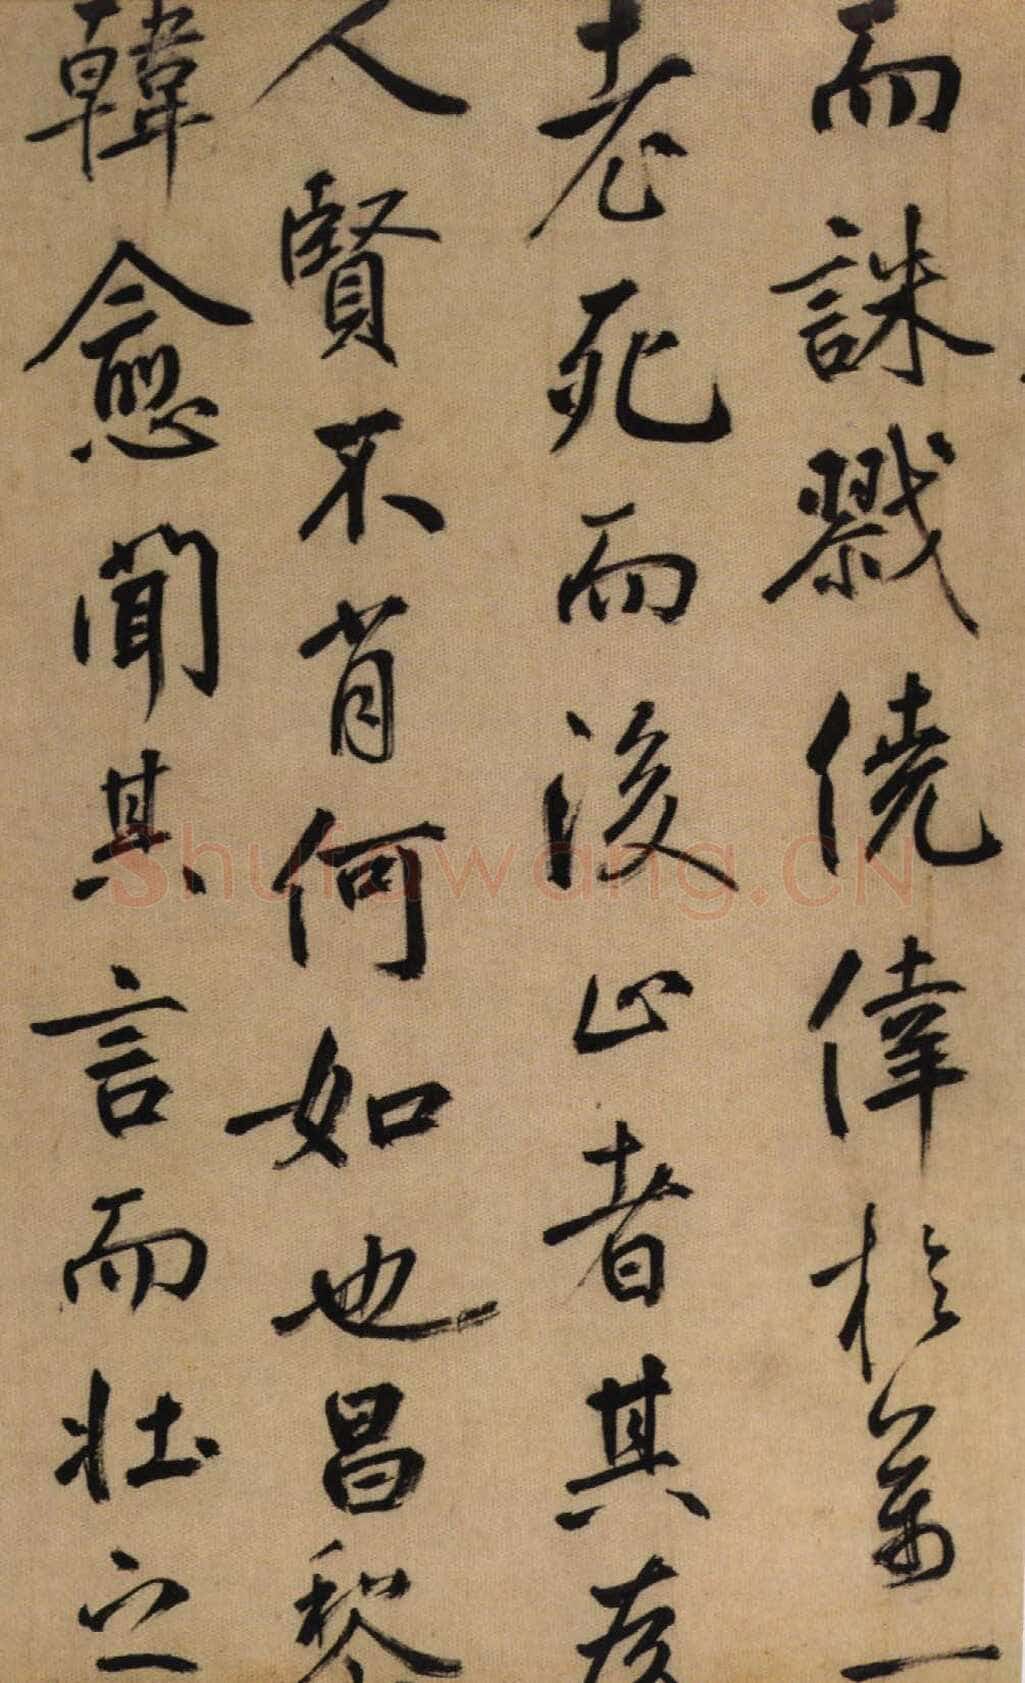 而誅戮僥倖於萬一
老死而後止者其
人賢不肖何如也昌黎
韓愈聞其言而壯之
Shufawang.CN